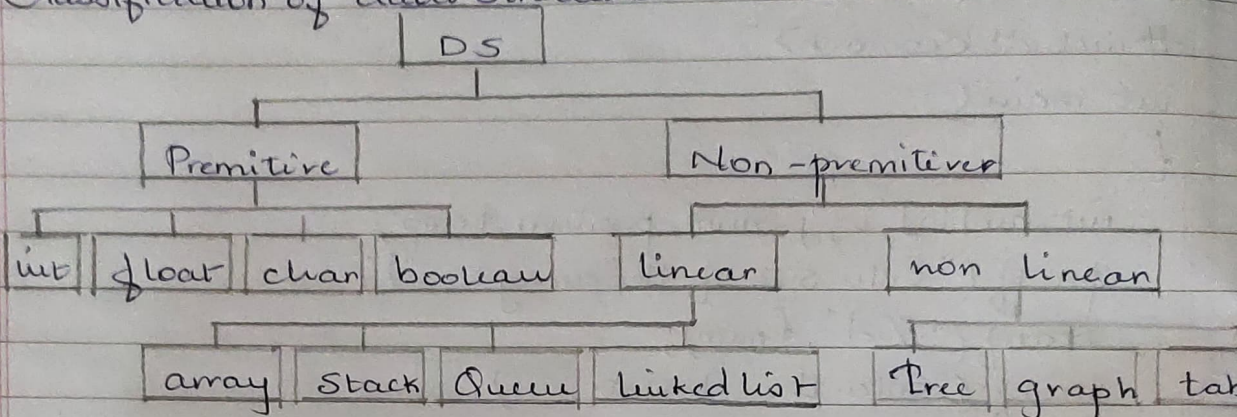 Classification of
DS
Premitive Non-premitives
int float char boolean linear non linear
array Stack Queue linked list tree graph